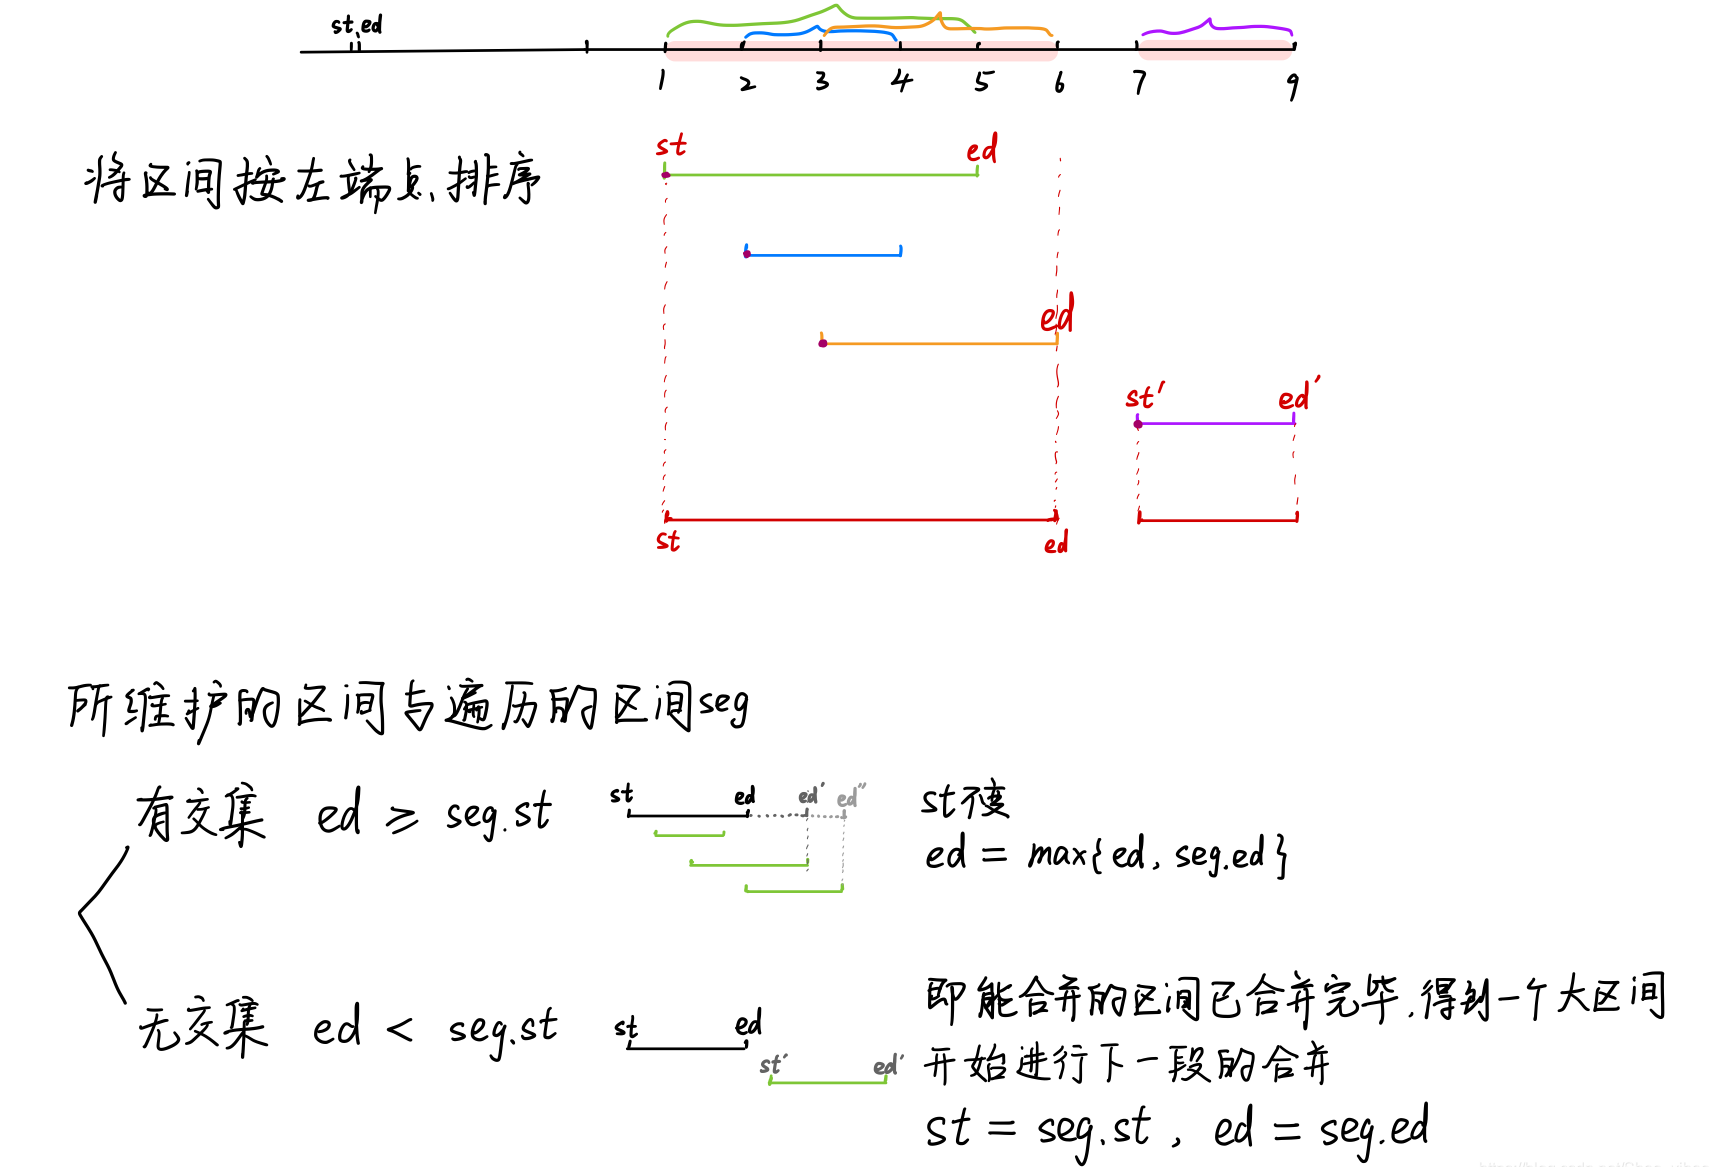 st,ed
1 2 3 4 5 6 7 9
将区间按左端点排序
st ed
ed
st' ed'
st ed
所维护的区间与遍历的区间seg
有交集 ed ≥ seg.st st ed ed' ed'' st不变
ed = max{ed, seg.ed}
无交集 ed < seg.st st ed 即能合并的区间已合并完毕,得到一个大区间
st' ed' 开始进行下一段的合并
st = seg.st, ed = seg.ed